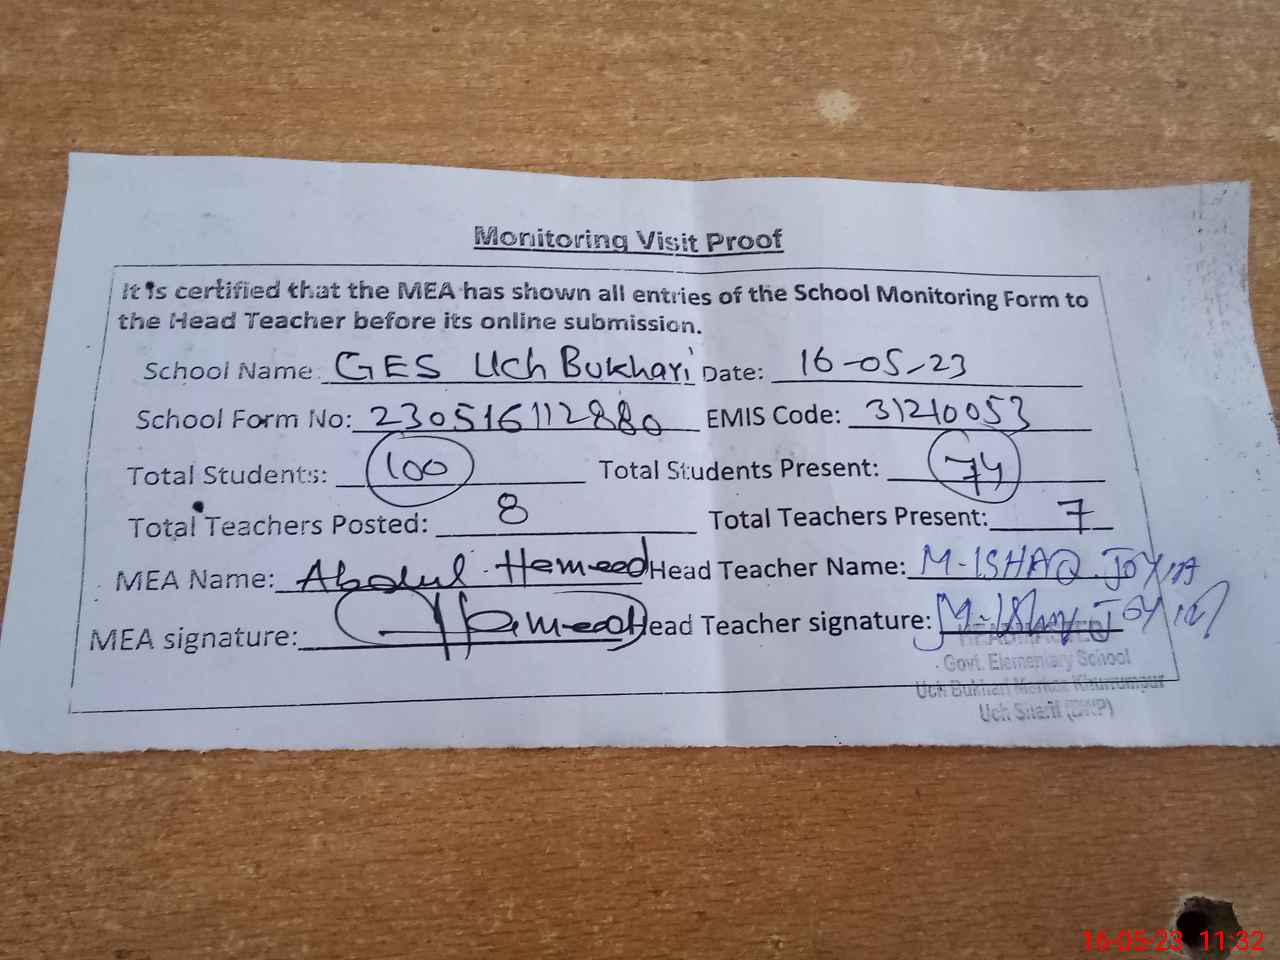 Monitoring Visit Proof
It is certified that the MEA has shown all entries of the School Monitoring Form to
the Head Teacher before its online submission.
School Name: GES Uch Bukhari Date: 16-05-23
School Form No: 230516112880 EMIS Code: 31210053
Total Students: 100 Total Students Present: 74
Total Teachers Posted: 8 Total Teachers Present: 7
MEA Name: Abdul Hameed Head Teacher Name: M-ISHAQ JOYIA
MEA signature: Hameed Head Teacher signature: M-Ishaq Joyia
HEADMASTER
Govt. Elementary School
Uch Bukhari Markaz Khurrumpur
Uch Sharif (BWP)
16-05-23 11:32